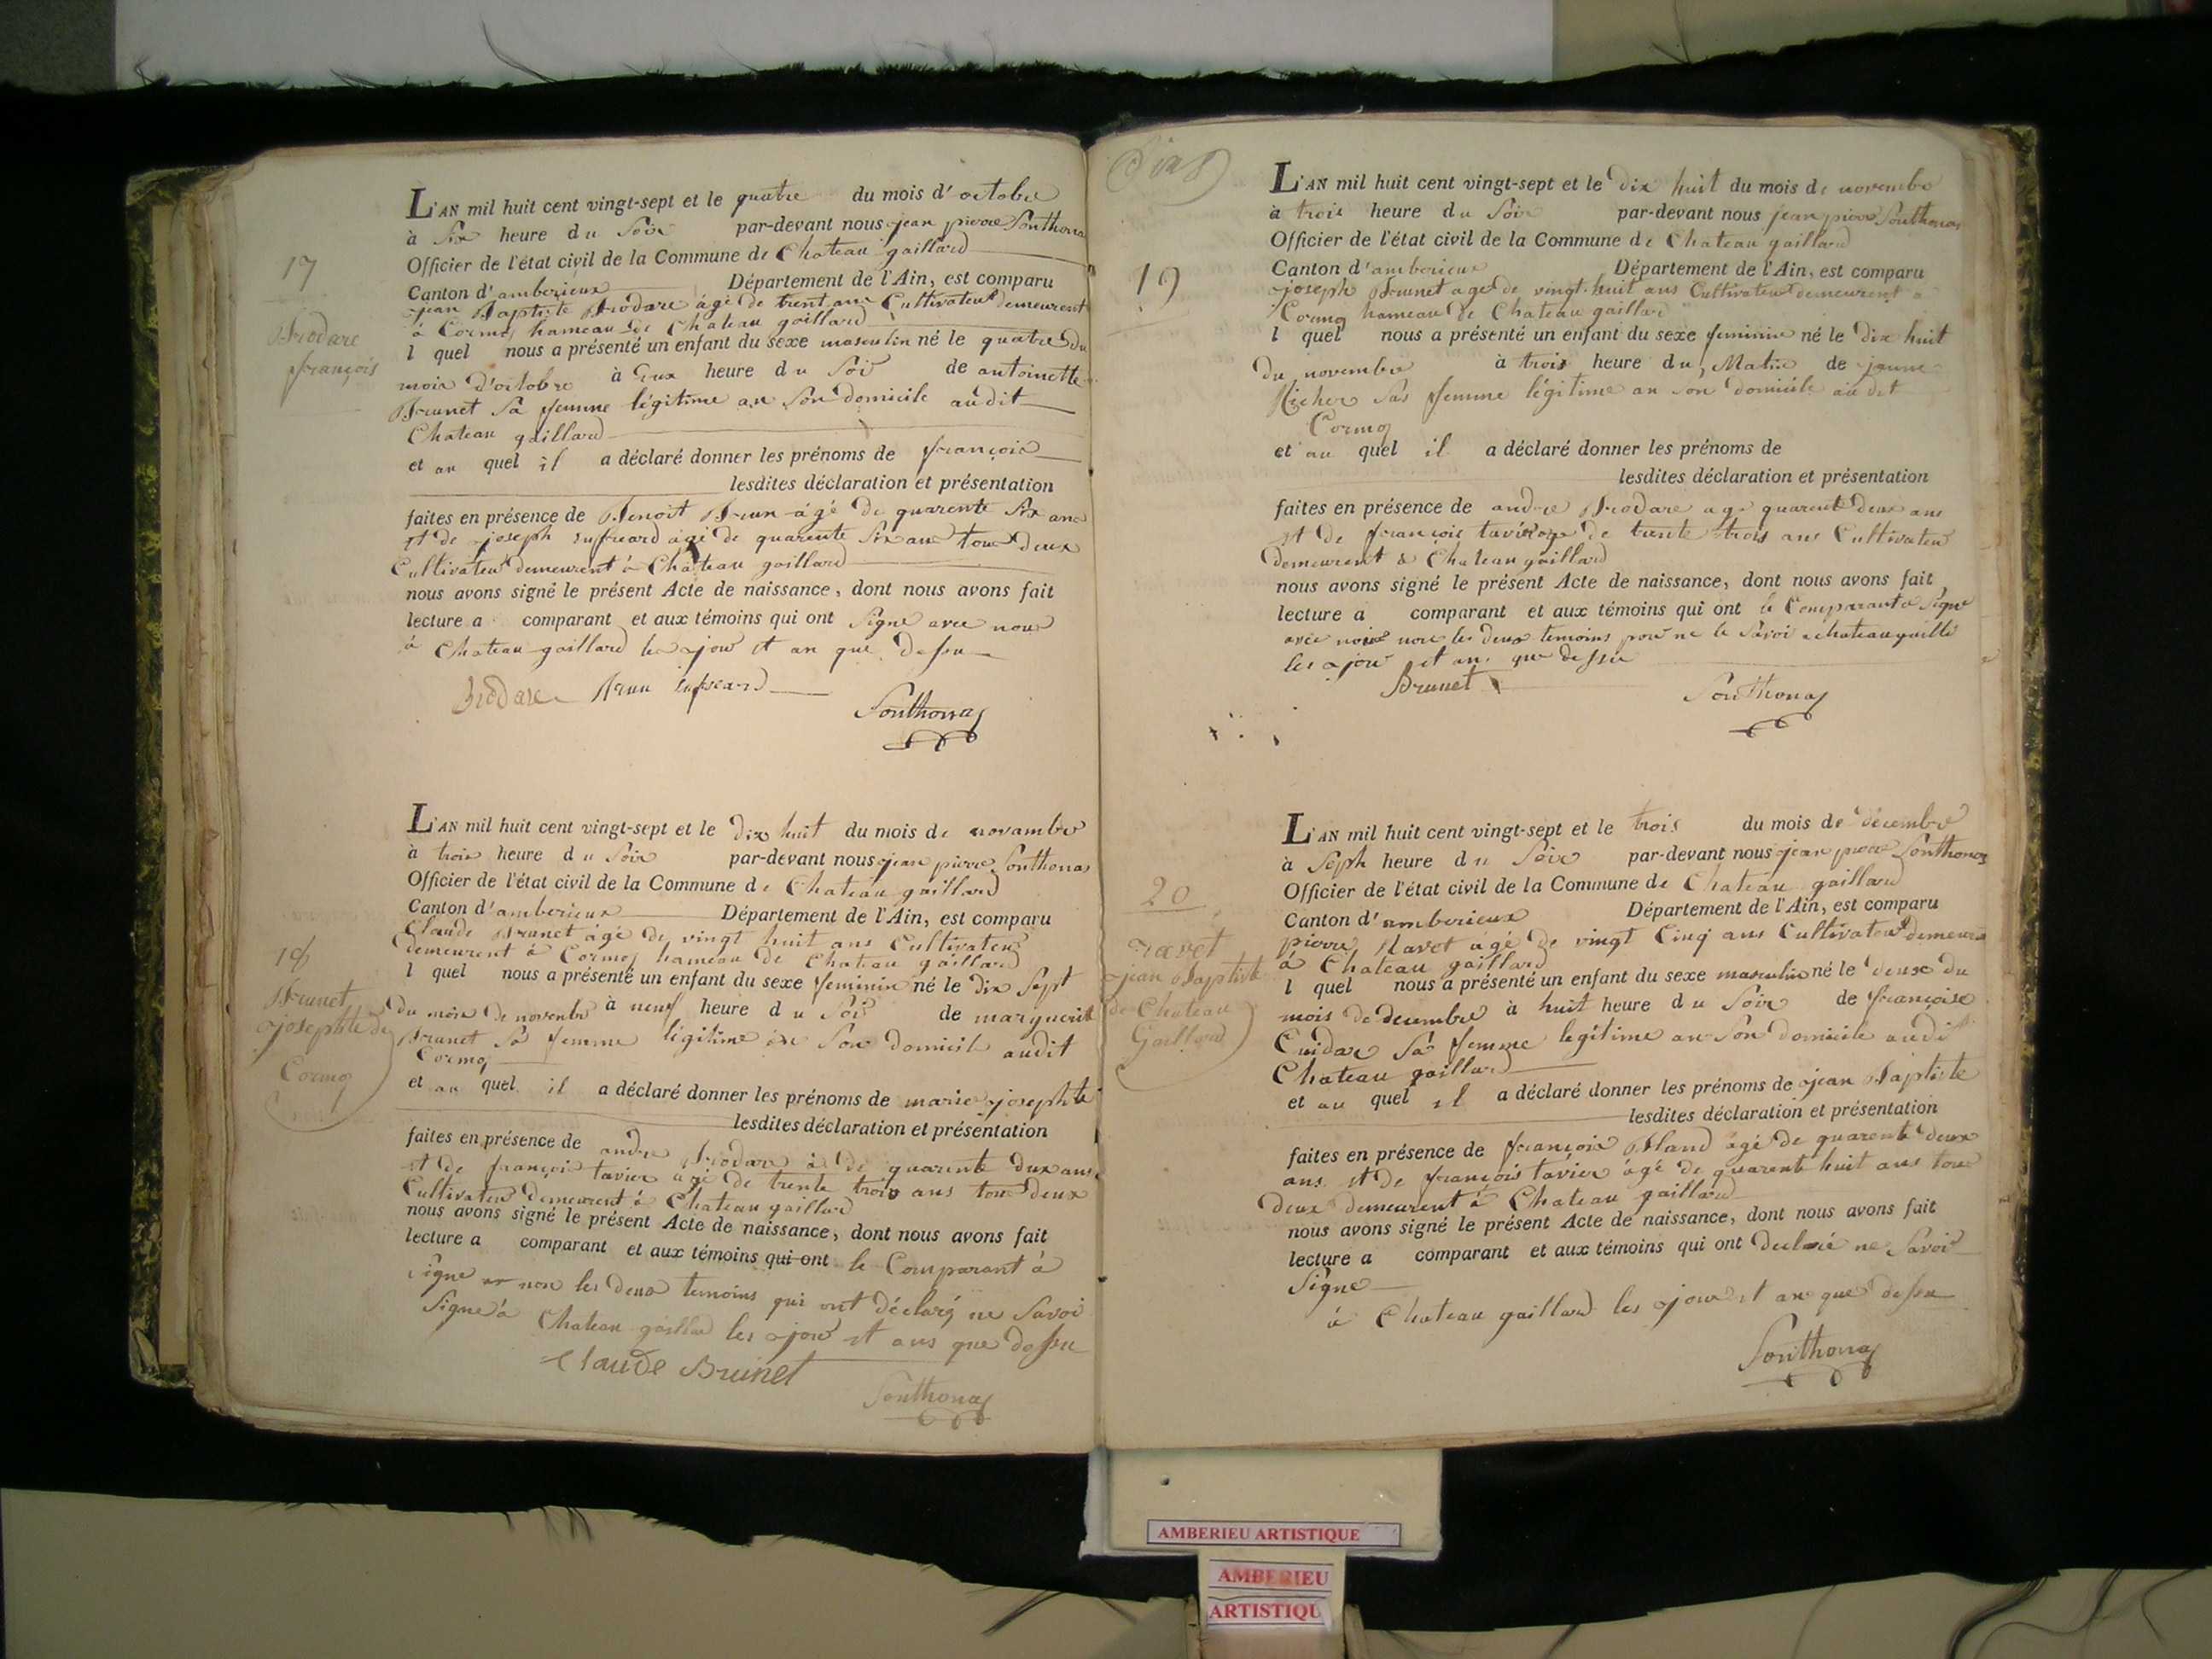 17
Brodare
françois
L'AN mil huit cent vingt-sept et le quatre du mois d'octobre
à six heure du Soir par-devant nous jean pierre Sonthonas
Officier de l'état civil de la Commune de Chateau gaillard
Canton d'amberieux Département de l'Ain, est comparu
jean Baptiste Brodare âgé de trent ans Cultivateur demeurent
à Cormoz hameau de Chateau gaillard
l quel nous a présenté un enfant du sexe masculin né le quatre du
mois d'octobre à deux heure du Soir de antoinette
Brunet Sa femme légitime an Son domicile audit
Chateau gaillard
et au quel il a déclaré donner les prénoms de françois
lesdites déclaration et présentation
faites en présence de Benoit Brun âgé de quarente six ans
et de joseph âgé de quarente six ans tous deux
Cultivateur demeurent à Chateau gaillard
nous avons signé le présent Acte de naissance, dont nous avons fait
lecture a comparant et aux témoins qui ont Signe avec nous
à Chateau gaillard les jour et an que dessu
Brodare Brun
Sonthonas
18
Brunet
josephte de
Cormoz
L'AN mil huit cent vingt-sept et le dix huit du mois de novambre
à trois heure du Soir par-devant nous jean pierre Sonthonas
Officier de l'état civil de la Commune de Chateau gaillard
Canton d'amberieux Département de l'Ain, est comparu
Claude Brunet âgé de vingt huit ans Cultivateur
demeurent à Cormoz hameau de Chateau gaillard
l quel nous a présenté un enfant du sexe feminin né le dix Sept
du mois de novembre à neuf heure du Soir de marguerit
Brunet Sa femme légitime an Son domicile audit
Cormoz
et au quel il a déclaré donner les prénoms de marie josephte
lesdites déclaration et présentation
faites en présence de andre Brodare de quarente dux ans
et de françois tavier âgé de trente trois ans tous deux
Cultivateur demeurent à Chateau gaillard
nous avons signé le présent Acte de naissance, dont nous avons fait
lecture a comparant et aux témoins qui ont le Comparant à
signe non les deux temoins qui ont déclaré ne Savoir
Signe à Chateau gaillard les jour et ans que dessu
Claude Brunet
Sonthonas
19
L'AN mil huit cent vingt-sept et le dix huit du mois de novembre
à trois heure du Soir par-devant nous jean pierre Sonthonas
Officier de l'état civil de la Commune de Chateau gaillard
Canton d'amberieux Département de l'Ain, est comparu
joseph Brunet age de vingt huit ans Cultivateur demeurent a
Cormoz hameau de Chateau gaillard
l quel nous a présenté un enfant du sexe feminin né le dix huit
du novembre à trois heure du Matin de
Richer Sas femme légitime an son domicile au dit
Cormoz
et au quel il a déclaré donner les prénoms de
lesdites déclaration et présentation
faites en présence de andre Brodare age quarente deux ans
et de françois tavier de trente trois ans Cultivateur
demeurent a Chateau gaillard
nous avons signé le présent Acte de naissance, dont nous avons fait
lecture a comparant et aux témoins qui ont le Comparant a Signe
avec nous non les deux temoins pour ne le Savoir a chateau gaille
les jour et an que dessu
Brunet
Sonthonas
20
ravet
jean Baptiste
de Chateau
Gaillard
L'AN mil huit cent vingt-sept et le trois du mois de décembre
à Seph heure du Soir par-devant nous jean pierre Sonthonas
Officier de l'état civil de la Commune de Chateau gaillard
Canton d'amberieux Département de l'Ain, est comparu
pierre Ravet âgé de vingt Cinq ans Cultivateur demeuren
à Chateau gaillard
l quel nous a présenté un enfant du sexe masculin né le deux du
mois de decembre à huit heure du Soir de françoise
Sa femme legitime an Son domicile audit
Chateau gaillard
et au quel il a déclaré donner les prénoms de jean Baptiste
lesdites déclaration et présentation
faites en présence de françois Bland âgé de quarente deux
ans et de françois tavier âgé de quarente huit ans tous
deux demeurent à Chateau gaillard
nous avons signé le présent Acte de naissance, dont nous avons fait
lecture a comparant et aux témoins qui ont declaré ne Savoir
Signe
à Chateau gaillard les jour et an que dessu
Sonthonas
AMBERIEU ARTISTIQUE
AMBERIEU
ARTISTIQU